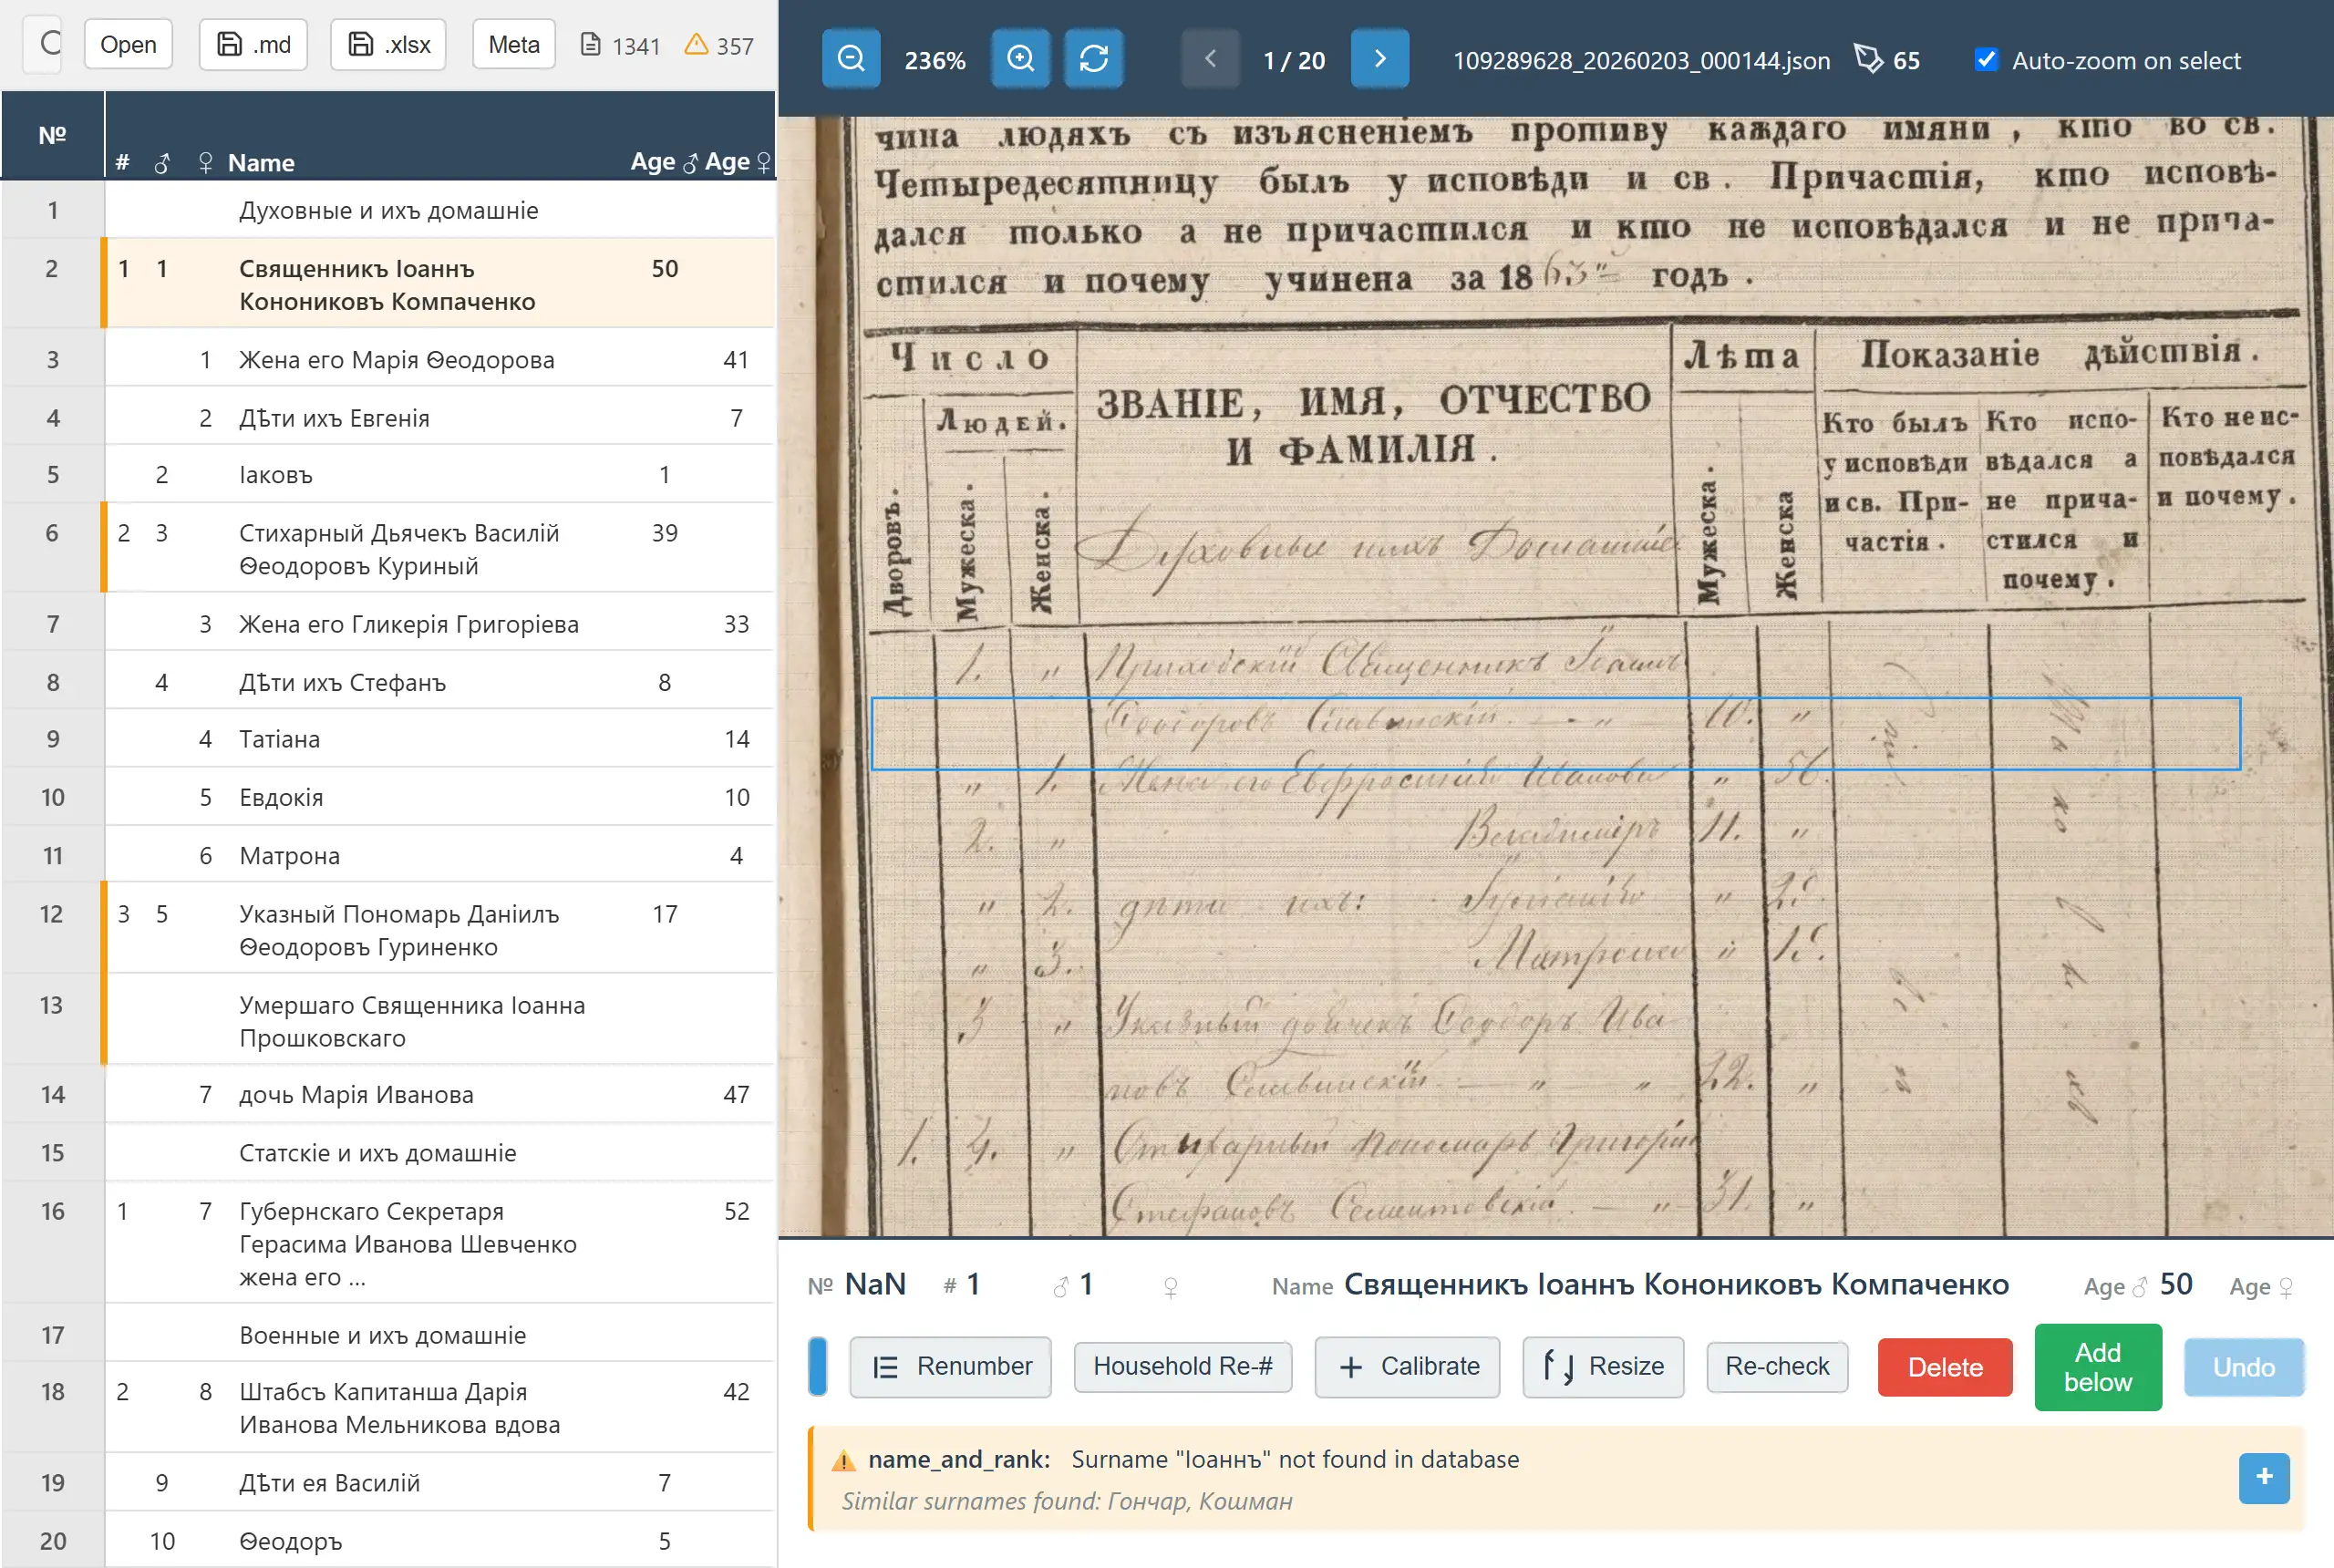 Open .md .xlsx Meta 1341 357
236% 1 / 20 109289628_20260203_000144.json 65 Auto-zoom on select
№ # ♂ ♀ Name Age ♂ Age ♀
1 Духовные и ихъ домашніе
2 1 1 Священникъ Іоаннъ 50
Конониковъ Компаченко
3 1 Жена его Марія Ѳеодорова 41
4 2 Дѣти ихъ Евгенія 7
5 2 Іаковъ 1
6 2 3 Стихарный Дьячекъ Василій 39
Ѳеодоровъ Куриный
7 3 Жена его Гликерія Григоріева 33
8 4 Дѣти ихъ Стефанъ 8
9 4 Татіана 14
10 5 Евдокія 10
11 6 Матрона 4
12 3 5 Указный Пономарь Даніилъ 17
Ѳеодоровъ Гуриненко
13 Умершаго Священника Іоанна
Прошковскаго
14 7 дочь Марія Иванова 47
15 Статскіе и ихъ домашніе
16 1 7 Губернскаго Секретаря 52
Герасима Иванова Шевченко
жена его ...
17 Военные и ихъ домашніе
18 2 8 Штабсъ Капитанша Дарія 42
Иванова Мельникова вдова
19 9 Дѣти ея Василій 7
20 10 Ѳеодоръ 5
чина людяхъ съ изъясненіемъ противу каждаго имяни, кто во св.
Четыредесятницу былъ у исповѣди и св. Причастія, кто исповѣ-
дался только а не причастился и кто не исповѣдался и не прича-
стился и почему учинена за 1863 годъ.
Число
Людей.
Дворовъ.
Мужеска.
Женска.
ЗВАНІЕ, ИМЯ, ОТЧЕСТВО
И ФАМИЛІЯ.
Духовные и ихъ Домашніе
Лѣта
Мужеска.
Женска
Показаніе дѣйствія.
Кто былъ
у исповѣди
и св. При-
частія.
Кто испо-
вѣдался а
не прича-
стился и
почему.
Кто не ис-
повѣдался
и почему.
1. " Приходскій Священникъ Іоаннъ
Ѳеодоровъ "
" 1. Жена его Евфросинія Иванова " 56.
2. " Владиміръ 11. "
" 2. дѣти ихъ: "
" 3. Матрона "
3 " Указный дьячекъ Ѳеодоръ Ива
новъ " " 22. "
1. 4. " Стихарный пономарь Григорій
Стефановъ " 31. "
№ NaN # 1 ♂ 1 ♀ Name Священникъ Іоаннъ Конониковъ Компаченко Age ♂ 50 Age ♀
Renumber Household Re-# Calibrate Resize Re-check Delete Add below Undo
name_and_rank: Surname "Іоаннъ" not found in database
Similar surnames found: Гончар, Кошман
+